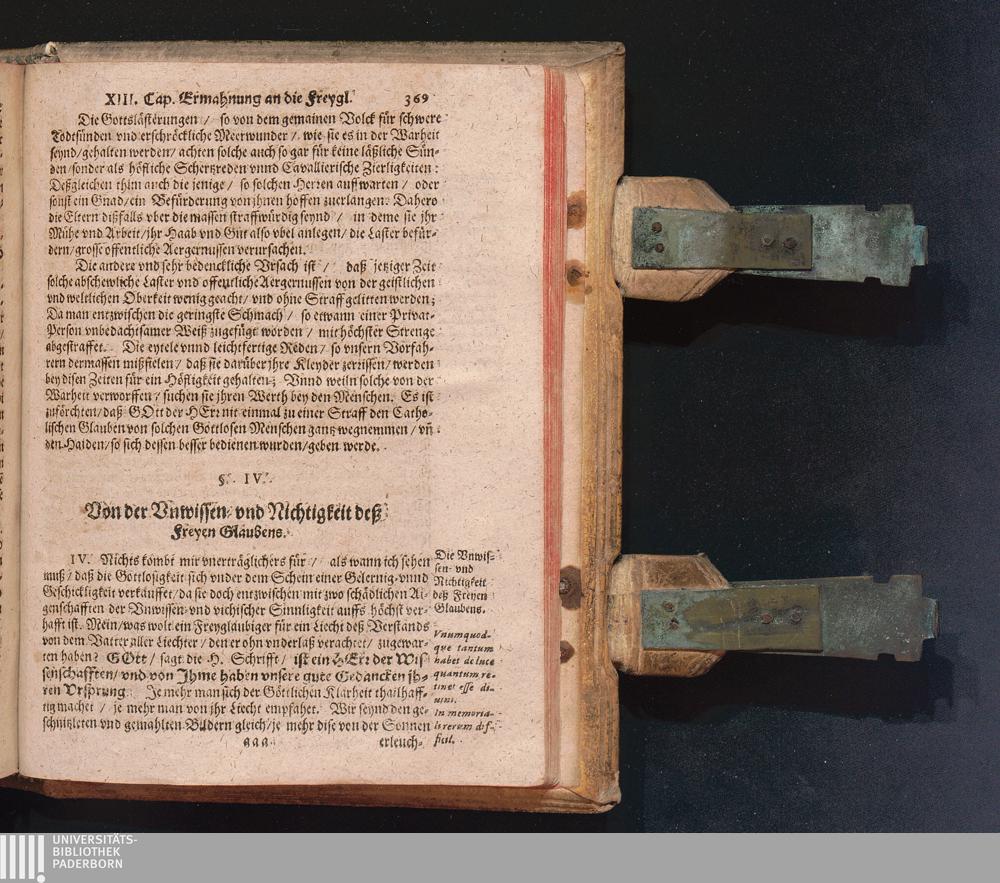 XIII. Cap. Ermahnung an die Freygl. 369
Die Gottslästerungen / so von dem gemainen Volck für schwere
Todtsünden vnd erschröckliche Meerwunder / wie sie es in der Warheit
seynd/gehalten werden/ achten solche auch so gar für keine läßliche Sün-
den/sonder als höfliche Schertzreden vnnd Cavallierische Zierligkeiten:
Deßgleichen thun auch die jenige / so solchen Herren auffwarten / oder
sonst ein Gnad/ein Befürderung von jhnen hoffen zuerlangen. Dahero
die Eltern dißfalls vber die massen straffwürdig seynd / in deme sie jhr
Mühe vnd Arbeit/jhr Haab vnd Gut also vbel anlegen/ die Laster befür-
dern/grosse offentliche Aergernussen verursachen.
Die andere vnd sehr bedenckliche Vrsach ist / daß jetziger Zeit
solche abschewliche Laster vnd offentliche Aergernussen von der geistlichen
vnd weltlichen Oberkeit wenig geacht/ vnd ohne Straff gelitten werden;
Da man entzwischen die geringste Schmach / so etwann einer Privat-
Person vnbedachtsamer Weiß zugefügt worden / mit höchster Strenge
abgestraffet. Die eytele vnnd leichtfertige Reden / so vnsern Vorfah-
rern dermassen mißfielen / daß sie darüber jhre Kleyder zerrissen/ werden
bey disen Zeiten für ein Höfligkeit gehalten; Vnnd weiln solche von der
Warheit verworffen / suchen sie jhren Werth bey den Menschen. Es ist
zuförchten/daß GOtt der HErr nit einmal zu einer Straff den Catho-
lischen Glauben von solchen Gottlosen Menschen gantz wegnemmen / vñ
den Haiden/so sich dessen besser bedienen wurden/geben werde.
§. IV.
Von der Vnwissen- vnd Nichtigkeit deß
Freyen Glaubens.
IV. Nichts kombt mir vnerträglichers für / als wann ich sehen
muß / daß die Gottlosigkeit sich vnder dem Schein einer Gelernig- vnnd
Geschickligkeit verkauffet/da sie doch entzwischen mit zwo schädlichen Ai-
genschafften der Vnwissen- vnd vichischer Sinnligkeit auffs höchst ver-
hafft ist. Mein/was wolt ein Freyglaubiger für ein Liecht deß Verstands
von dem Vatter aller Liechter / den er ohn vnderlaß verachtet / zugewar-
ten haben? GOtt / sagt die H. Schrifft / ist ein HErr der Wis-
senschafften/ vnd von Jhme haben vnsere gute Gedancken jh-
ren Vrsprung. Je mehr man sich der Göttlichen Klarheit thailhaff-
tig machet / je mehr man von jhr Liecht empfahet. Wir seynd den ge-
schnitzleten vnd gemahlten Bildern gleich/je mehr dise von der Sonnen
aaa erleuch-
Die Vnwis-
sen- vnd
Nichtigkeit
deß Freyen
Glaubens.
Vnumquod-
que tantum
habet de luce
quantum re-
tinet esse di-
In memoria-
li rerum dif-
ficil.
UNIVERSITÄTS-
BIBLIOTHEK
PADERBORN